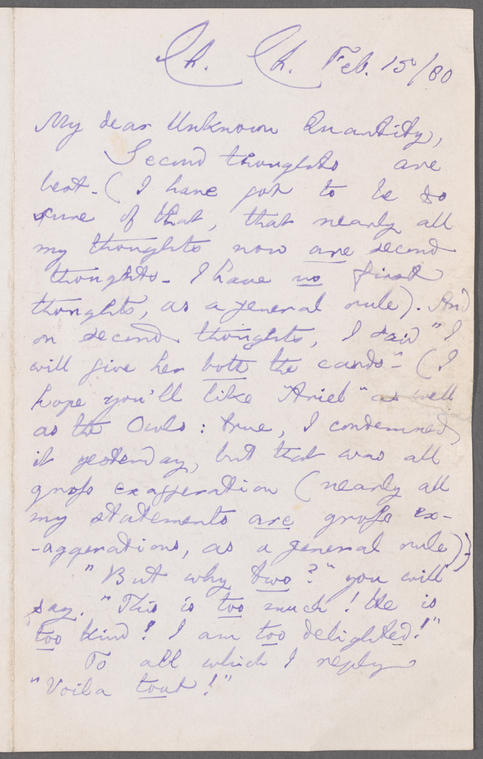 Ch. Ch. Feb. 15/80
My dear Unknown Quantity,
Second thoughts are
best. (I have got to be so
sure of that, that nearly all
my thoughts now are second
thoughts - I have no first
thoughts, as a general rule). And
on second thoughts, I said "I
will give her both the cards." (I
hope you'll like "Ariel" as well
as the Owls: true, I condemned
it yesterday, but that was all
gross exaggeration (nearly all
my statements are gross ex-
-aggerations, as a general rule))
"But why two?" you will
say. "This is too much! He is
too kind! I am too delighted!"
To all which I reply
"Voila tout!"